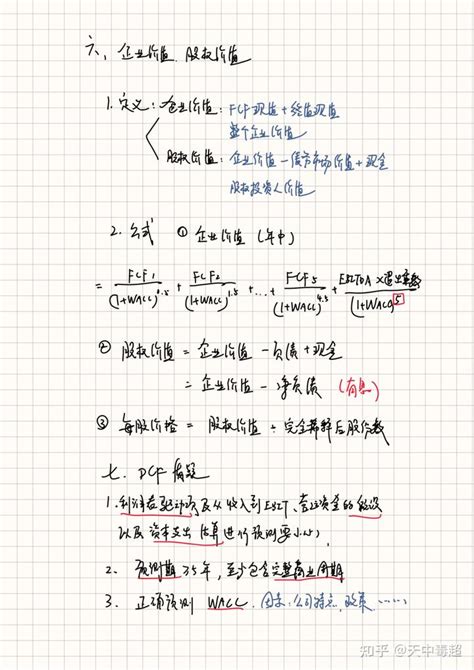 六、企业价值、股权价值
1. 定义：企业价值：FCF现值+终值现值
整个企业价值
股权价值：企业价值-债务市场价值+现金
股权投资人价值
2. 公式 ① 企业价值（年中）
= FCF1/(1+WACC)^0.5 + FCF2/(1+WACC)^1.5 + ... + FCF5/(1+WACC)^4.5 + EBITDA×退出乘数/(1+WACC)^5
② 股权价值 = 企业价值 - 负债 + 现金
= 企业价值 - 净负债 (有息)
③ 每股价格 = 股权价值 ÷ 完全稀释后股份数
七、DCF
1. 利润 驱动项及从收入到EBIT、营运资金的假设
以及资本支出估算进行预测要小心;
2. 预测期 35年，至少包含完整商业周期
3. 正确预测 WACC. 因素：公司特点，政策......
知乎 @天中毒超